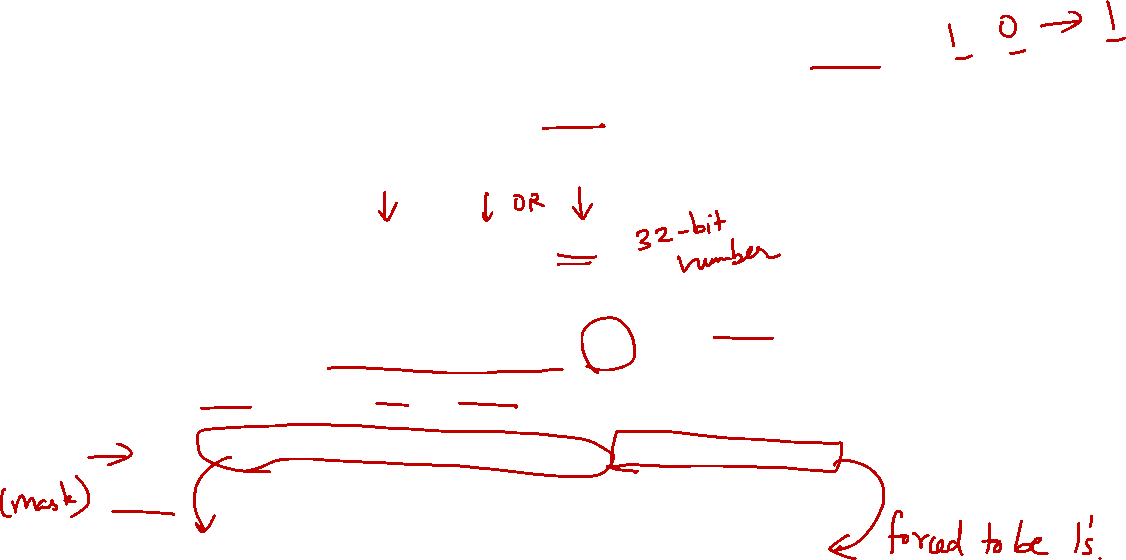 1 0 → 1
↓ ↓ OR ↓
32-bit
number
→
(mask)
forced to be 1's.